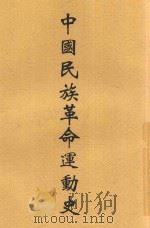 中國民族革命運動史
www.mtoou.info